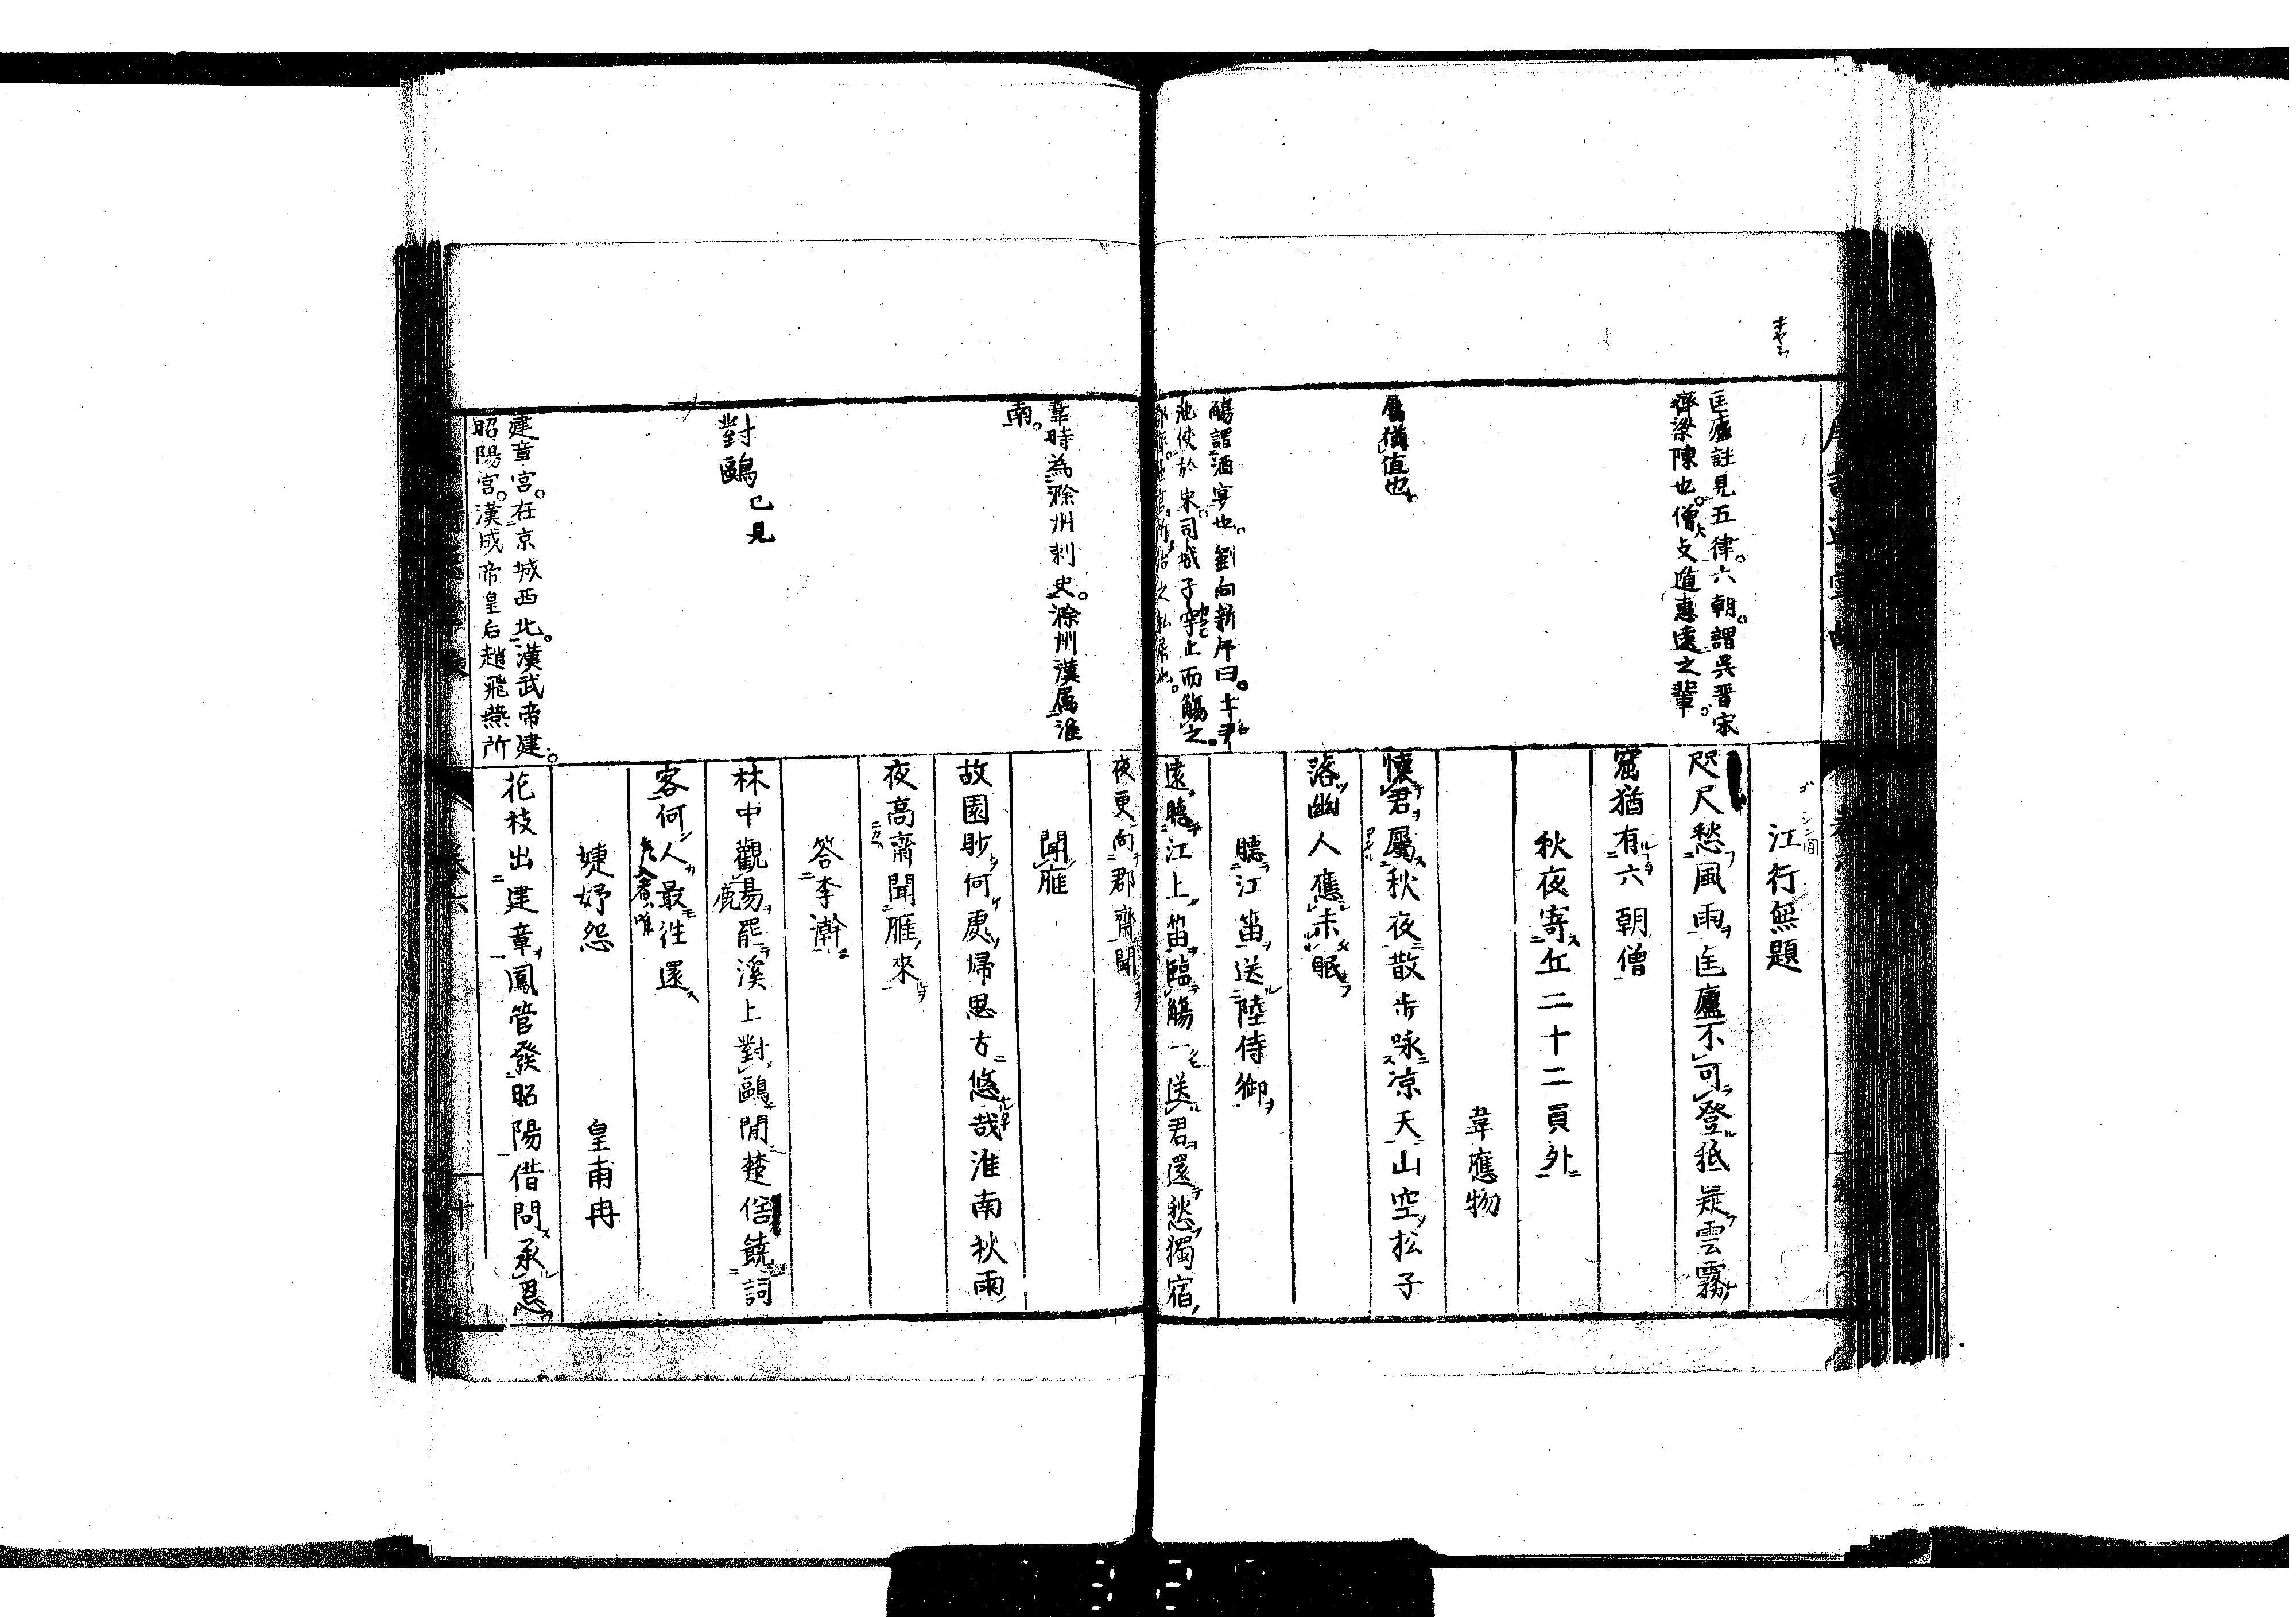 匡廬註見五律。六朝。謂吳晉宋
齊梁陳也。僧。支遁惠遠之輩。
江行無題
咫尺愁風雨匡廬不可登祇疑雲霧
窟猶有六朝僧
秋夜寄丘二十二員外
韋應物
屬猶值也。
懷君屬秋夜散步咏凉天山空松子
落幽人應未眠
觴謂酒宴也。劉向新序曰。士尹
池使於宋。司城子罕止而觴之。
聽江笛送陸侍御
遠聽江上笛臨觴一送君還愁獨宿
夜更向郡齋聞
韋時為滁州刺史。滁州漢屬淮
南。
聞雁
故園眇何處歸思方悠哉淮南秋雨
夜高齋聞雁來
對鷗已見
答李澣
林中觀易罷溪上對鷗閒楚俗饒詞
客何人最往還
婕妤怨
皇甫冉
建章宮。在京城西北。漢武帝建。
昭陽宮。漢成帝皇后趙飛燕所
花枝出建章鳳管發昭陽借問承恩
卷六
十